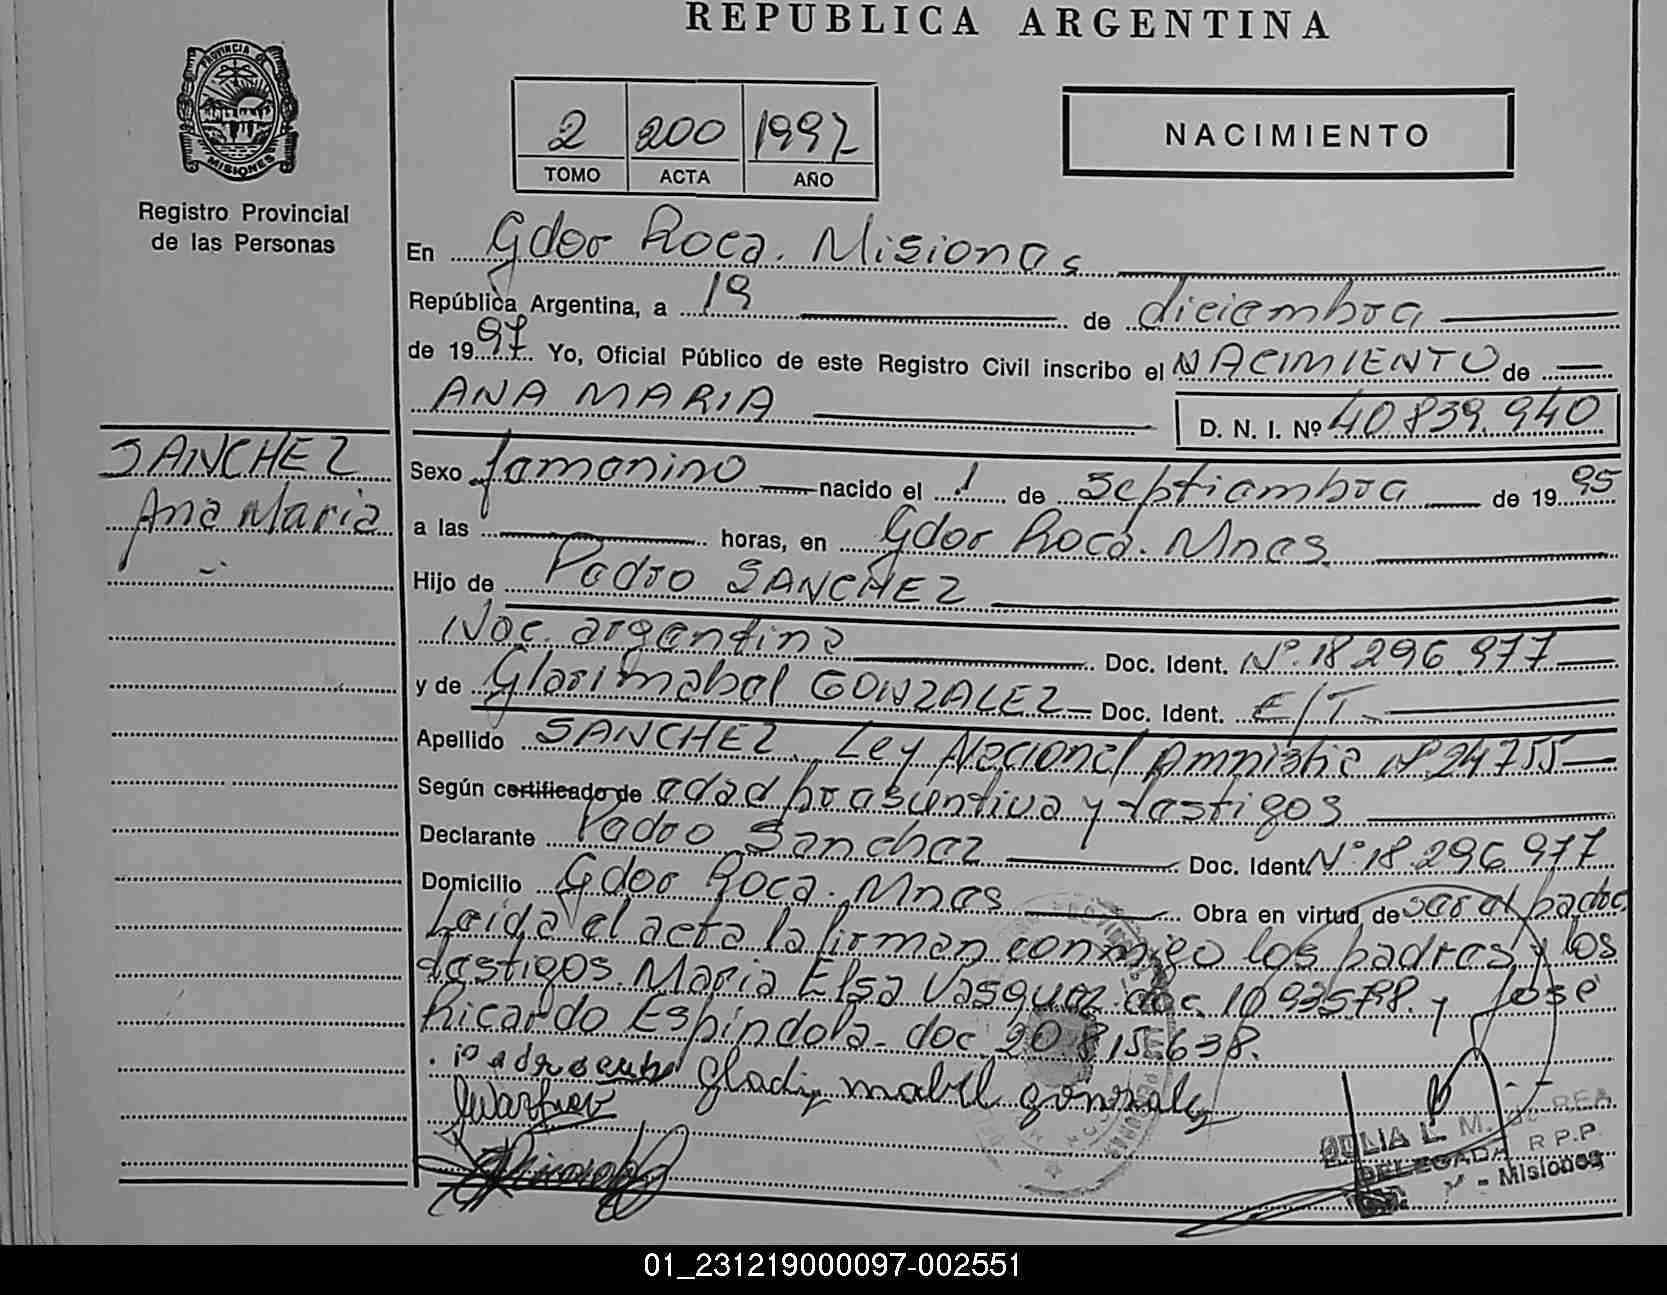 REPUBLICA ARGENTINA
PROVINCIA DE MISIONES
Registro Provincial
de las Personas
2 200 1997
TOMO ACTA AÑO
NACIMIENTO
En Gdor Roca. Misiones
República Argentina, a 19 de diciembre
de 1997 Yo, Oficial Público de este Registro Civil inscribo el NACIMIENTO de
ANA MARIA D. N. I. Nº 40.839.940
SANCHEZ
Ana Maria
Sexo femenino nacido el 1 de septiembre de 1995
a las horas, en Gdor Roca. Mnes
Hijo de Pedro SANCHEZ
Nac. argentina Doc. Ident. Nº 18 296 977
y de Glasimabel GONZALEZ Doc. Ident. E/T.
Apellido SANCHEZ. Ley Nacional Amnistia Nº 24755
Según certificado de edad presuntiva y testigos
Declarante Pedro Sanchez Doc. Ident. Nº 18.296.977
Domicilio Gdor Roca. Mnes Obra en virtud de ser el padre
Leida el acta la firman conmigo los padres y los
testigos. Maria Elsa Vasquez. doc. 10 935788. y José
Ricardo Espindola. doc 20 815638.
gladiz mabel gonzalez
L. M.
DELEGADA R P.P.
- Misiones
01_231219000097-002551